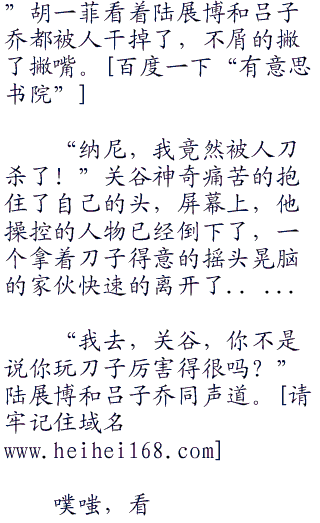 ”胡一菲看着陆展博和吕子
乔都被人干掉了，不屑的撇
了撇嘴。[百度一下“有意思
书院”]
“纳尼，我竟然被人刀
杀了！”关谷神奇痛苦的抱
住了自己的头，屏幕上，他
操控的人物已经倒下了，一
个拿着刀子得意的摇头晃脑
的家伙快速的离开了.. ...
“我去，关谷，你不是
说你玩刀子厉害得很吗？”
陆展博和吕子乔同声道。[请
牢记住域名
www.heihei168.com]
噗嗤，看